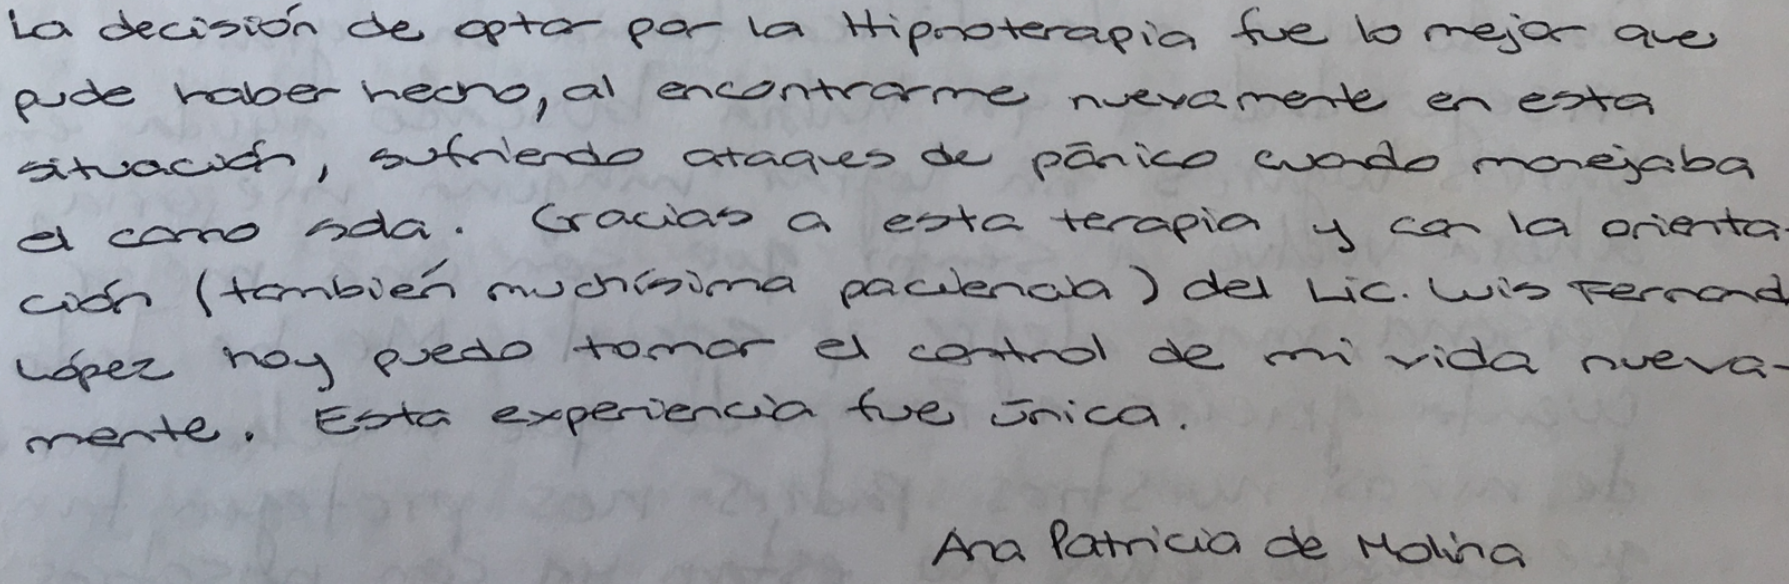 La decisión de optar por la Hipnoterapia fue lo mejor que
pude haber hecho, al encontrarme nuevamente en esta
situación, sufriendo ataques de pánico cuando manejaba
el carro sola. Gracias a esta terapia y con la orienta-
ción (también muchísima paciencia) del Lic. Luis Fernand
López hoy puedo tomar el control de mi vida nueva-
mente. Esta experiencia fue única.
Ana Patricia de Molina